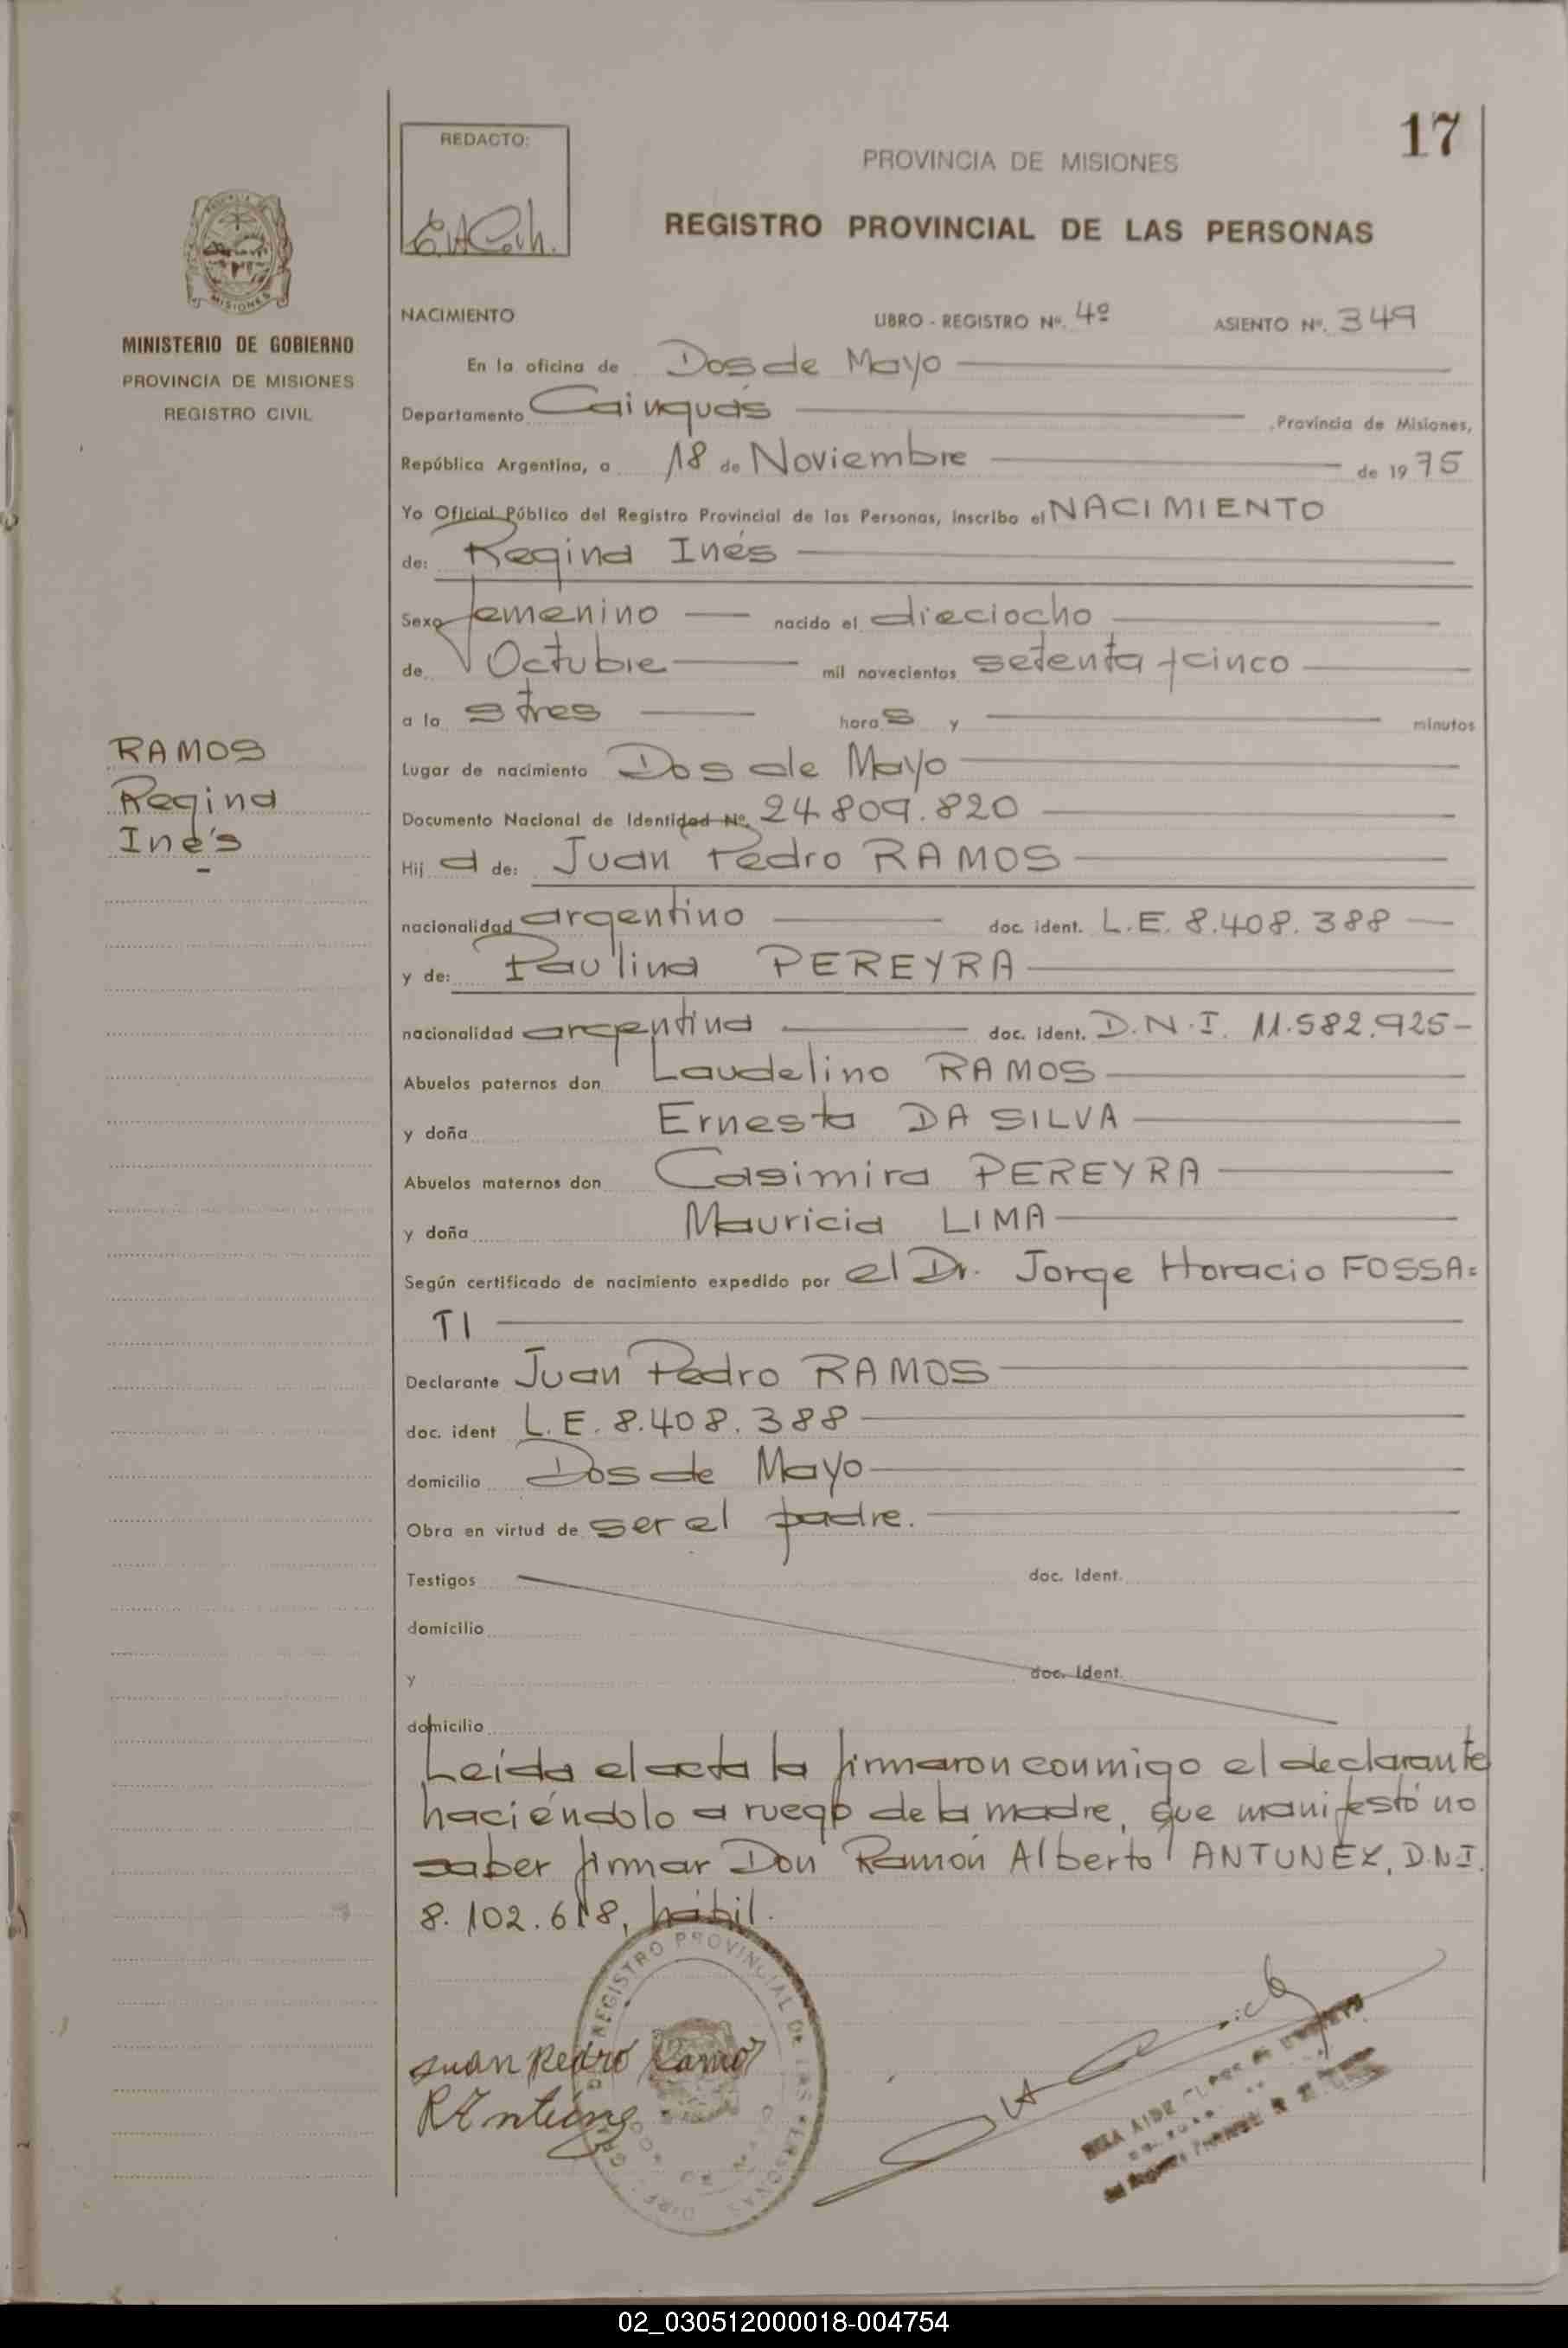 17
REDACTO:
PROVINCIA DE MISIONES
REGISTRO PROVINCIAL DE LAS PERSONAS
MISIONES
MINISTERIO DE GOBIERNO
PROVINCIA DE MISIONES
REGISTRO CIVIL
NACIMIENTO LIBRO - REGISTRO Nº. 4º ASIENTO Nº. 349
En la oficina de Dos de Mayo
Departamento Cainguás , Provincia de Misiones,
República Argentina, a 18 de Noviembre de 1975
Yo Oficial Público del Registro Provincial de las Personas, inscribo el NACIMIENTO
de: Regina Inés
Sexo femenino nacido el dieciocho
de Octubre mil novecientos setenta y cinco
a la s tres hora s y minutos
RAMOS
Regina
Inés
Lugar de nacimiento Dos de Mayo
Documento Nacional de Identidad Nº. 24.809.820
Hij a de: Juan Pedro RAMOS
nacionalidad argentino doc. ident. L.E. 8.408.388
y de: Paulina PEREYRA
nacionalidad argentina doc. Ident. D.N.I. 11.582.925-
Abuelos paternos don Laudelino RAMOS
y doña Ernesta DA SILVA
Abuelos maternos don Casimira PEREYRA
y doña Mauricia LIMA
Según certificado de nacimiento expedido por el Dr. Jorge Horacio FOSSA=
TI
Declarante Juan Pedro RAMOS
doc. ident L.E. 8.408.388
domicilio Dos de Mayo
Obra en virtud de ser el padre.
Testigos doc. Ident.
domicilio
y doc. Ident.
domicilio
Leída el acta la firmaron conmigo el declarante
haciéndolo a ruego de la madre, que manifestó no
saber firmar Don Ramón Alberto ANTUNEZ, D.N.I.
8.102.618, hábil.
REGISTRO PROVINCIAL DE LAS PERSONAS
Juan Pedro Ramos
R Antúnez
02_030512000018-004754